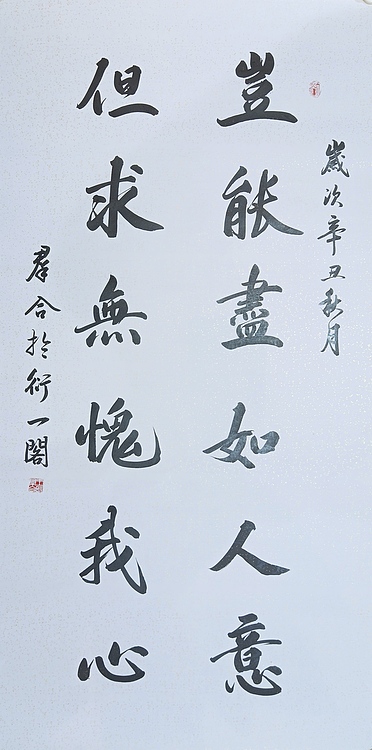 歲次辛丑秋月
豈能盡如人意
但求無愧我心
羣合於衍一閣